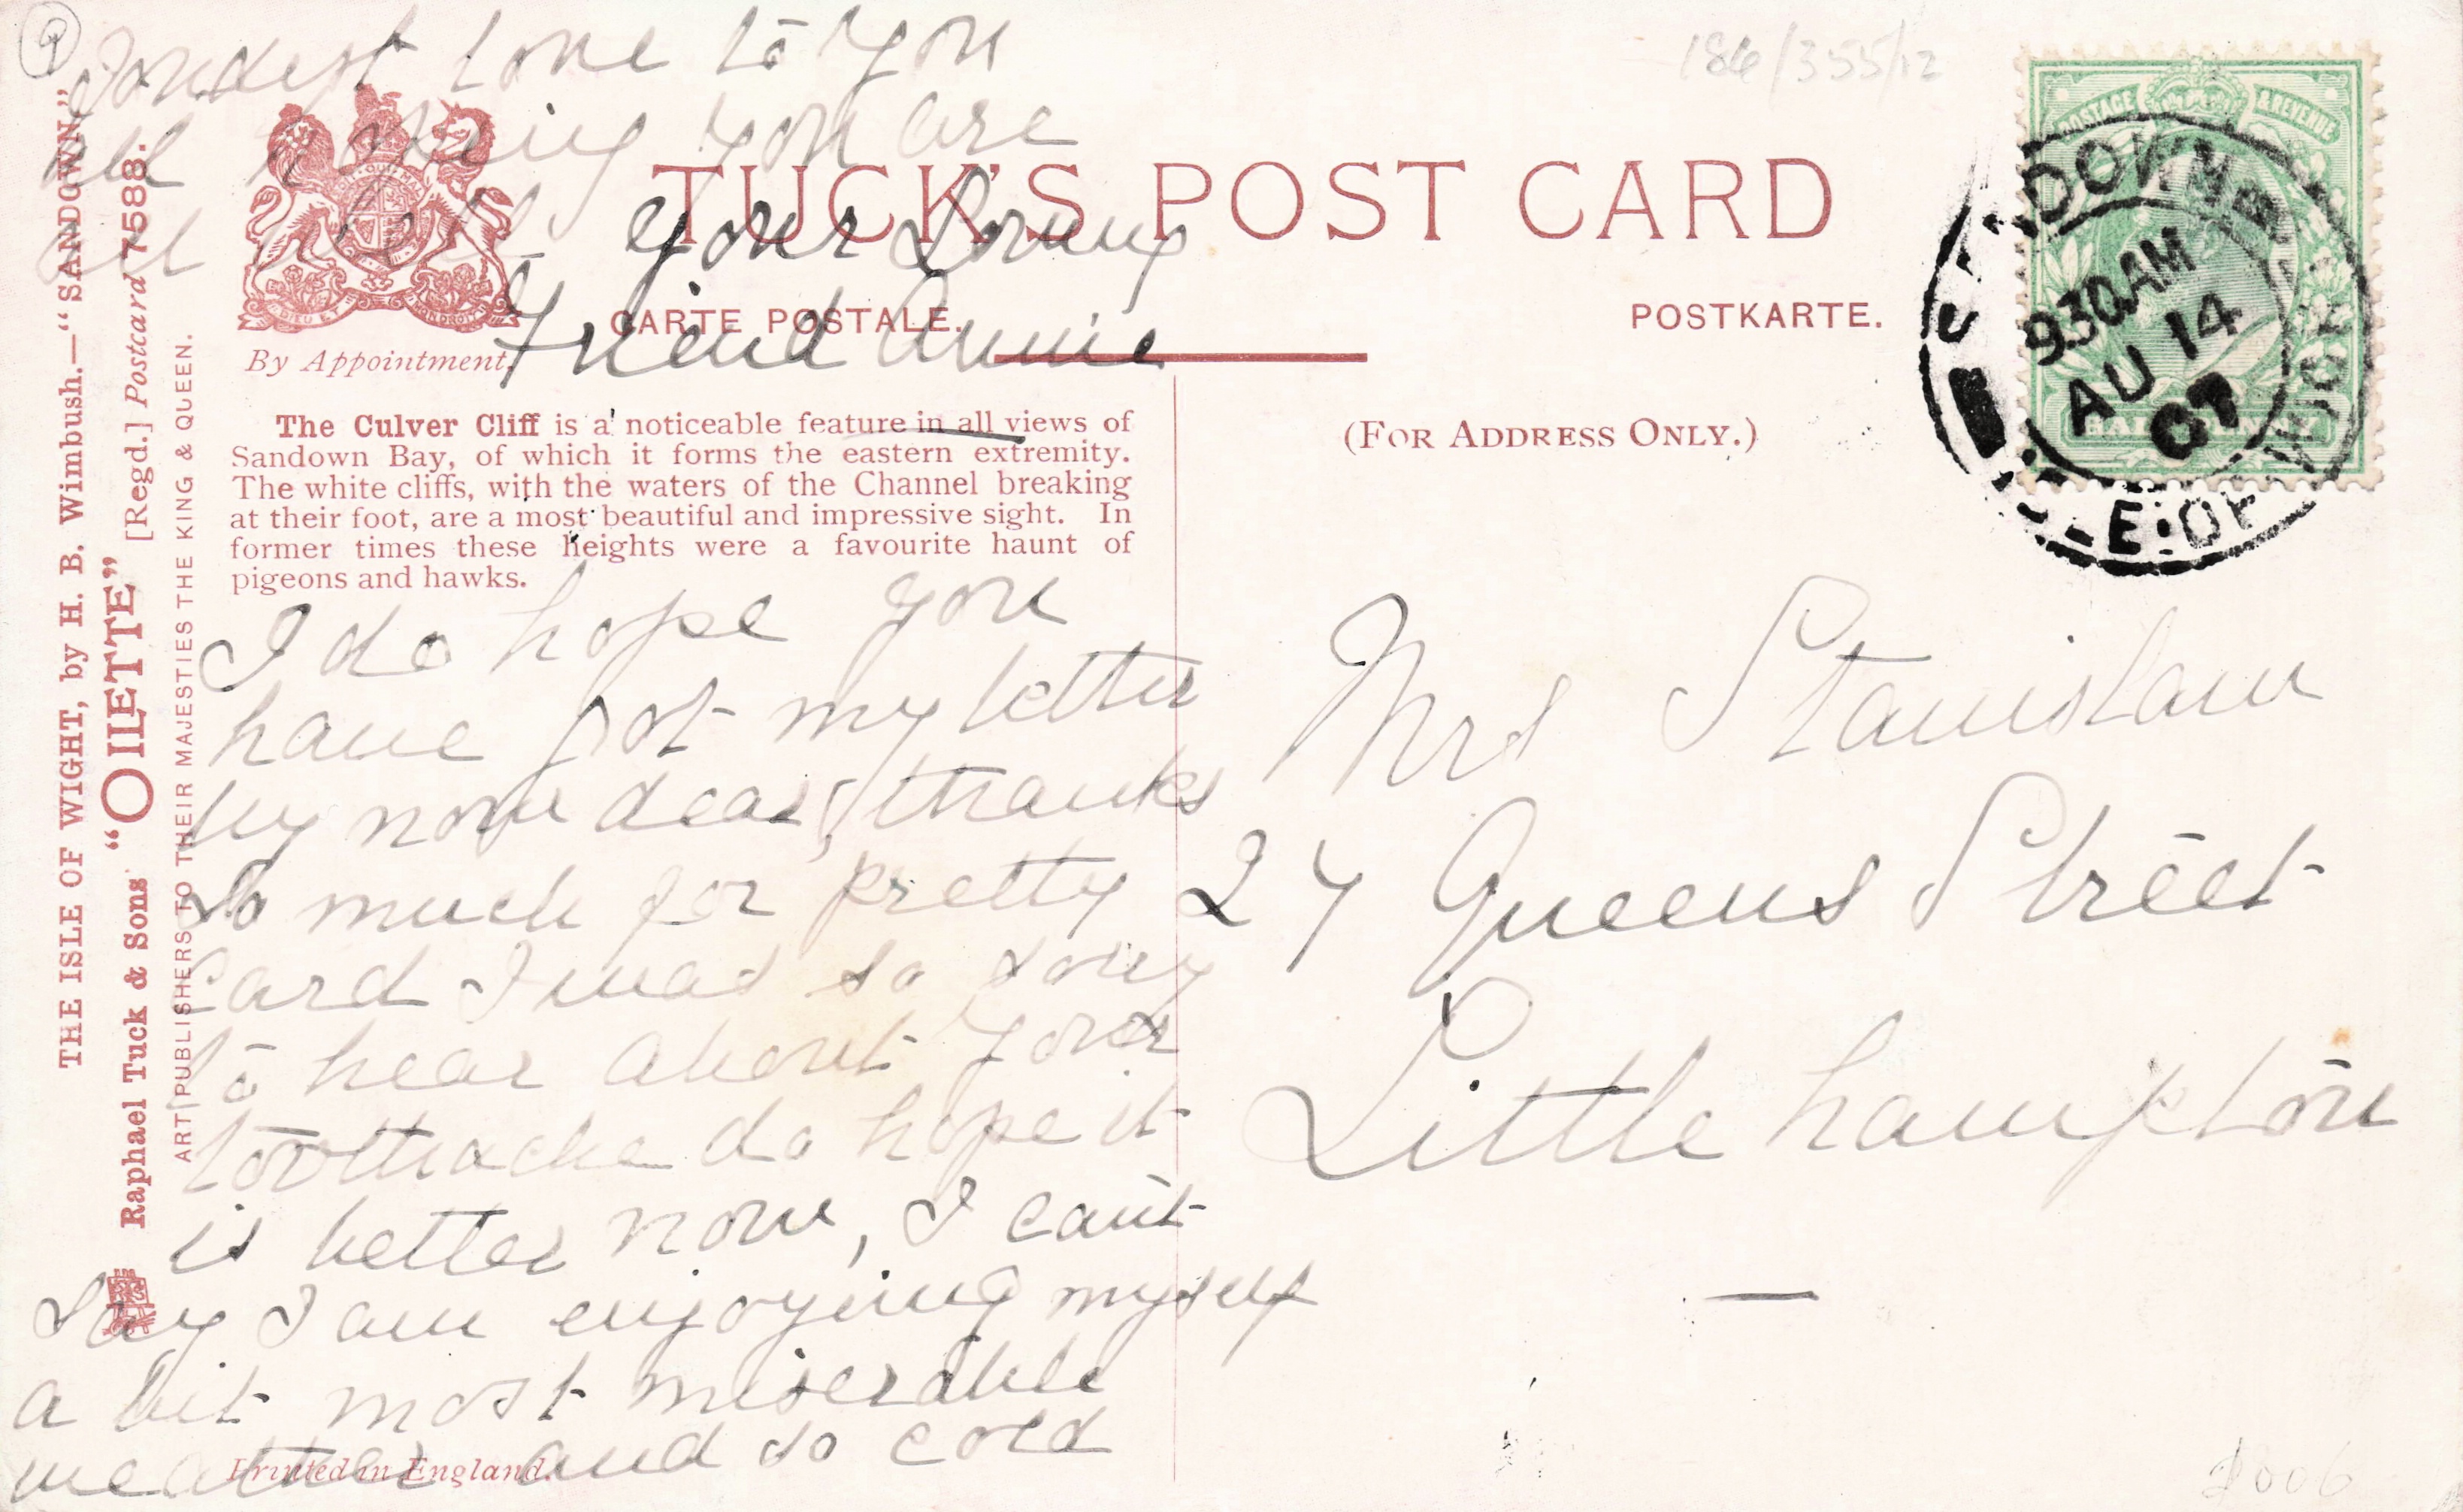 9
186/355/12
TUCK'S POST CARD
CARTE POSTALE.
POSTKARTE.
By Appointment.
(FOR ADDRESS ONLY.)
The Culver Cliff is a noticeable feature in all views of
Sandown Bay, of which it forms the eastern extremity.
The white cliffs, with the waters of the Channel breaking
at their foot, are a most beautiful and impressive sight. In
former times these heights were a favourite haunt of
pigeons and hawks.
THE ISLE OF WIGHT, by H. B. Wimbush.—"SANDOWN"
Raphael Tuck & Sons' "OILETTE" [Regd.] Postcard 7588.
ART PUBLISHERS TO THEIR MAJESTIES THE KING & QUEEN.
Printed in England.
I do hope you
have got my letter
by now dear, thanks
so much for pretty
card I was so sorry
to hear about your
toothache do hope it
is better now, I can't
say I am enjoying myself
a bit most miserable
weather and so cold
Fondest love to you
all hoping you are
all well your loving
Friend Annie
Mrs Stanislaw
27 Queens Street
Littlehampton
POSTAGE & REVENUE
HALFPENNY
SANDOWN
9 30 AM
AU 14
07
E. OF WIGHT